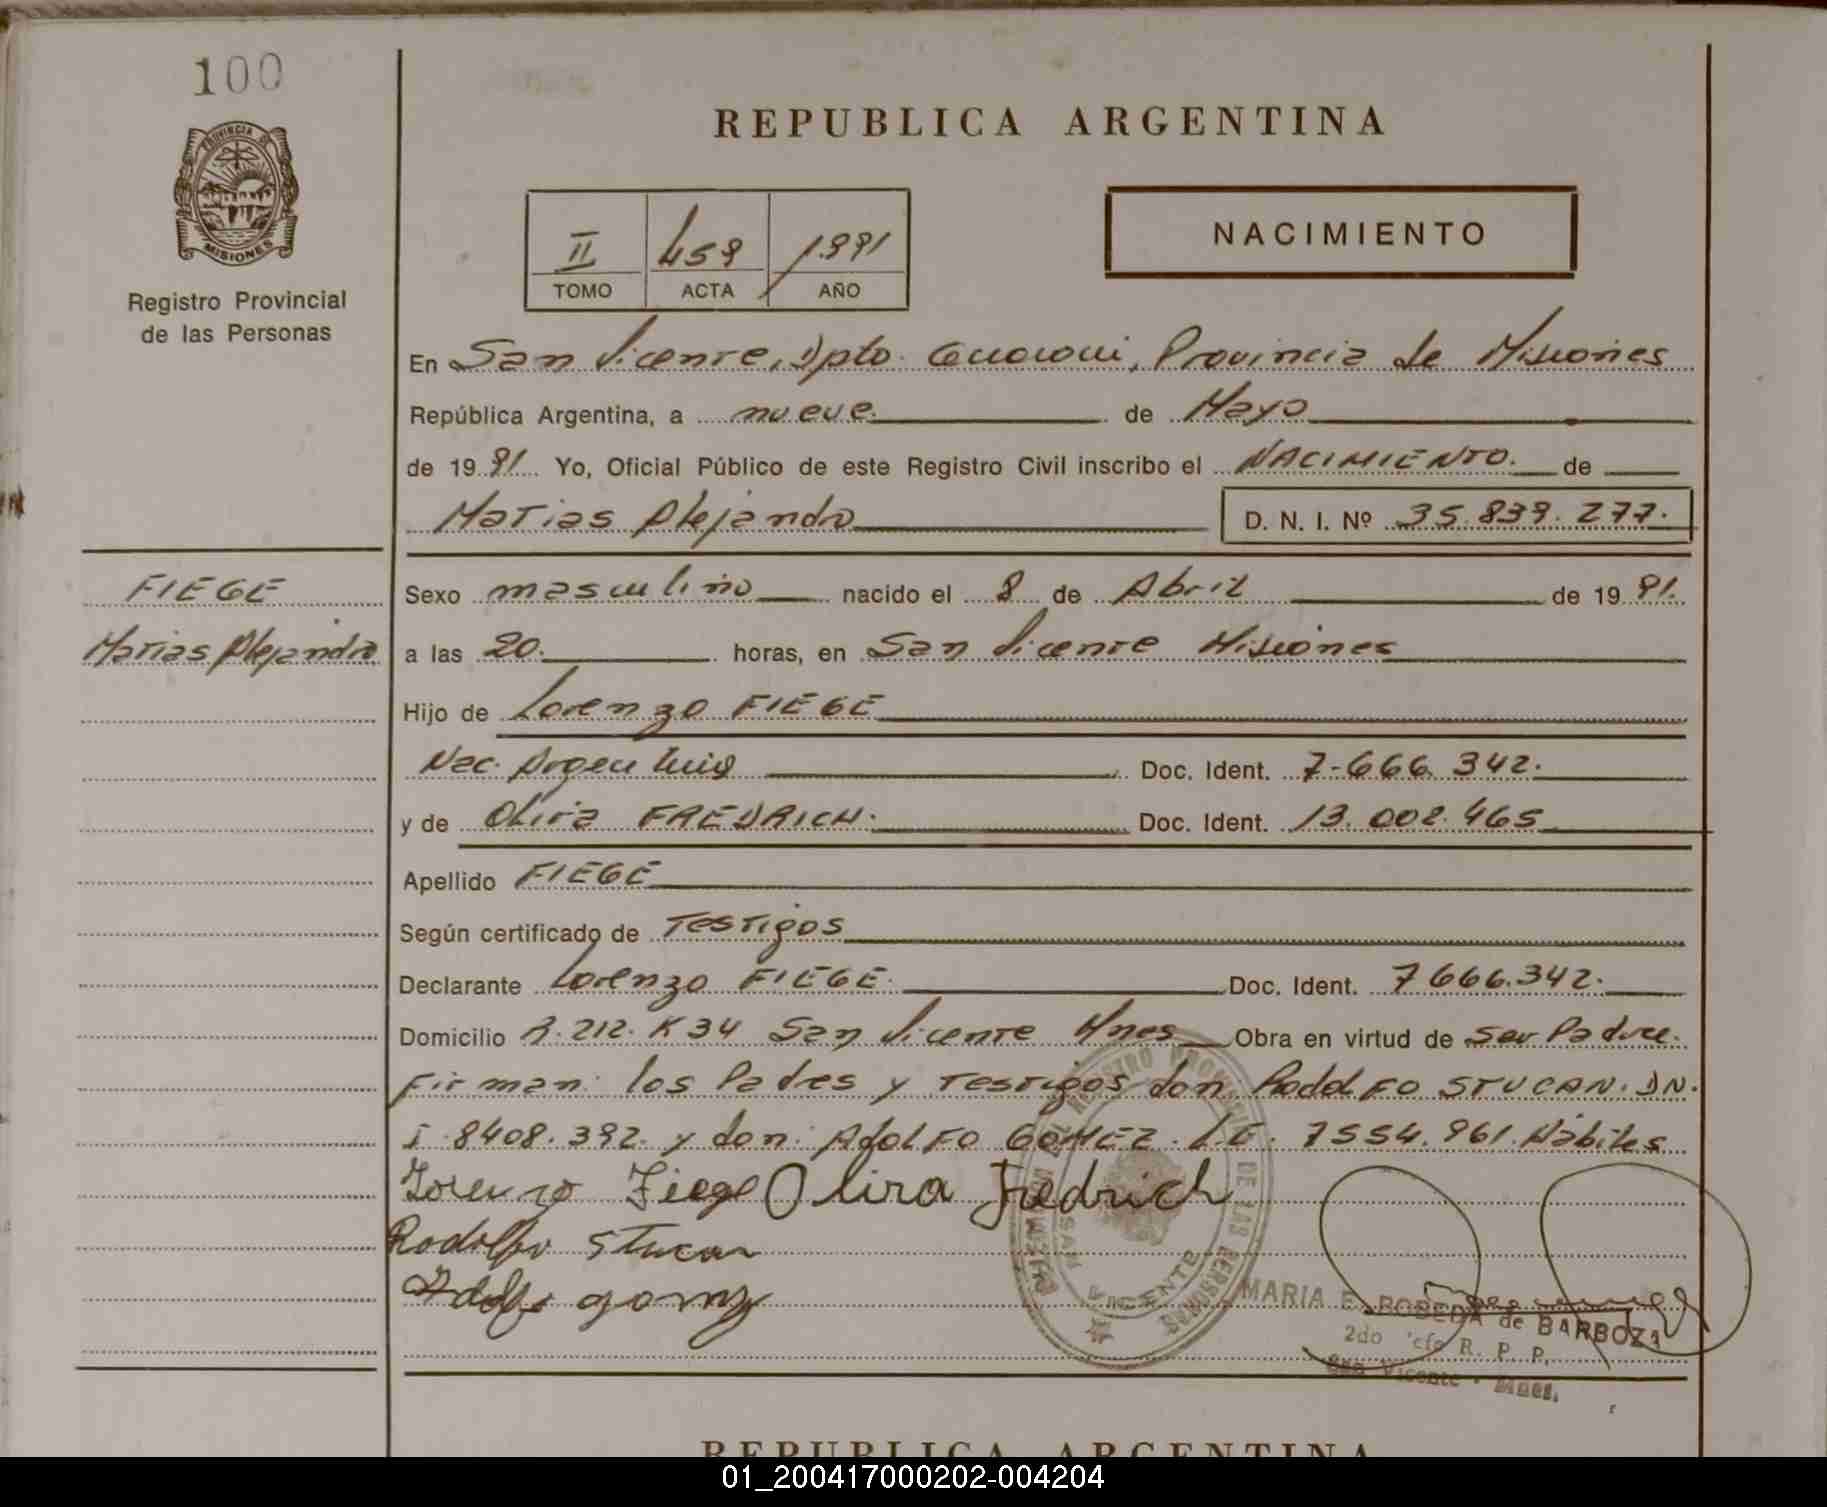 100
PROVINCIA DE
MISIONES
Registro Provincial
de las Personas
REPUBLICA ARGENTINA
II 459 1991
TOMO ACTA AÑO
NACIMIENTO
En San Vicente, Dpto. Guaraní, Provincia de Misiones
República Argentina, a nueve. de Mayo
de 19 91 Yo, Oficial Público de este Registro Civil inscribo el NACIMIENTO. de
Matias Alejandro D. N. I. Nº 35.839.277.
FIEGE
Matias Alejandro
Sexo masculino nacido el 8 de Abril de 19 91.
a las 20. horas, en San Vicente Misiones
Hijo de Lorenzo FIEGE
Nac. Argentina Doc. Ident. 7.666.342.
y de Olira FREDRICH. Doc. Ident. 13.002.465
Apellido FIEGE
Según certificado de Testigos
Declarante Lorenzo FIEGE. Doc. Ident. 7666.342.
Domicilio R.212. K34 San Vicente Mnes Obra en virtud de Ser Padre.
Firman: los Padres y Testigos don Rodolfo STUCAN. DN.
I 8408.392. y don: Adolfo GOMEZ. L.E. 7554.961. Hábiles
Lorenzo Fiege Olira Fredrich
Rodolfo Stucan
Adolfo gomez
REGISTRO PROVINCIAL DE LAS PERSONAS
SAN VICENTE
MARIA E. BOBEDA de BARBOZA
2do R. P. P.
San Vicente - Mnes.
REPUBLICA ARGENTINA
01_200417000202-004204